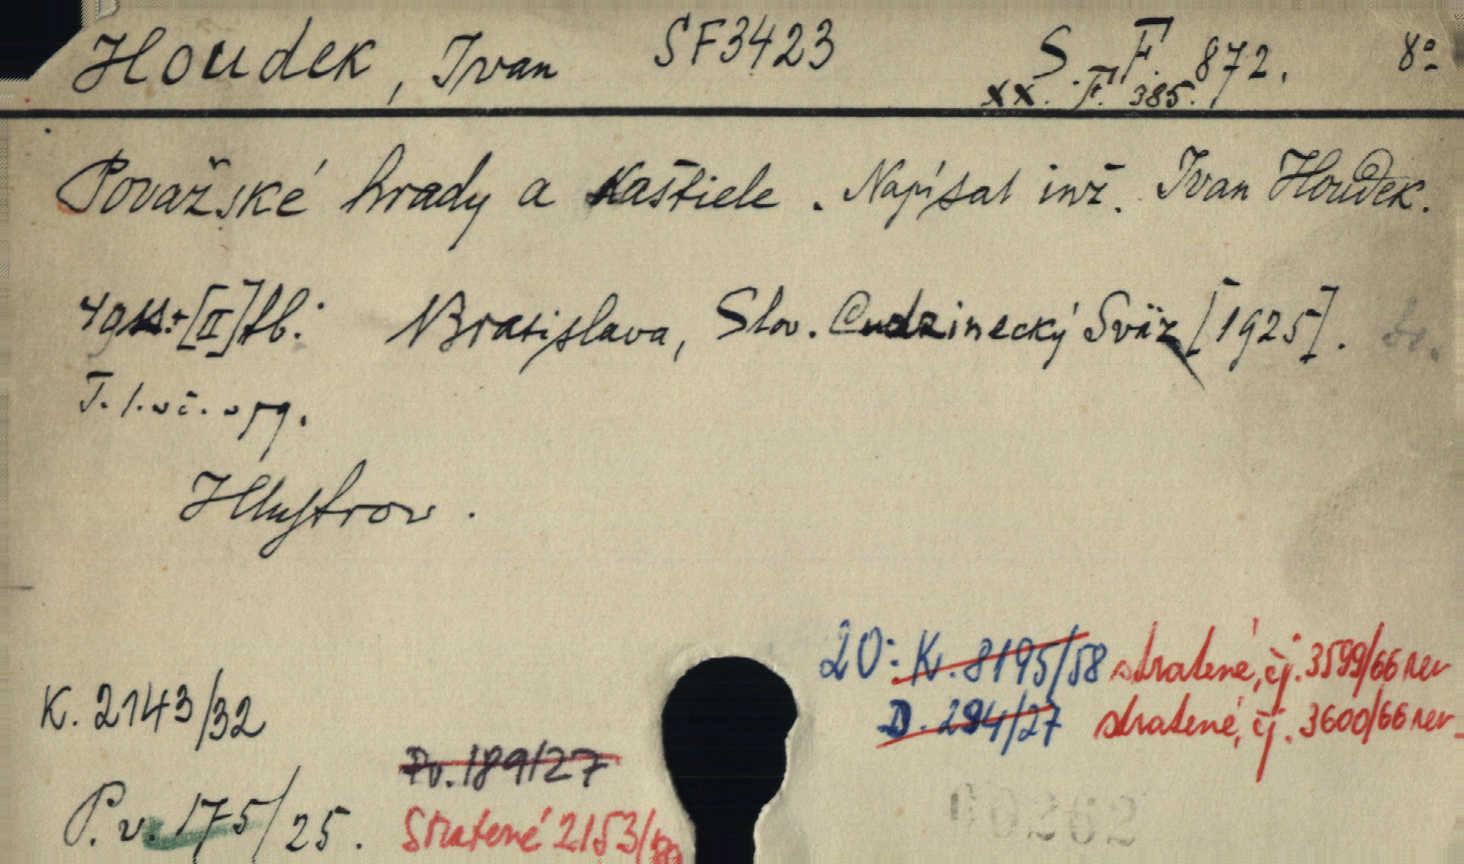 Houdek, Ivan SF3423 S. F. 872. 8º
XX. F. 385.
Považské hrady a kaštiele. Napísal inž. Ivan Houdek.
[II] Bratislava, Slov. Cudzinecký Sväz [1925].
T. I. uč. spg.
Illustrov.
20: K. 8195/58 stratené, čj. 3599/66 rev
D. 294/27 stratené, čj. 3600/66 rev
K. 2143/32
Pv. 189/27
P. v. 175/25. Stratené 2153/80